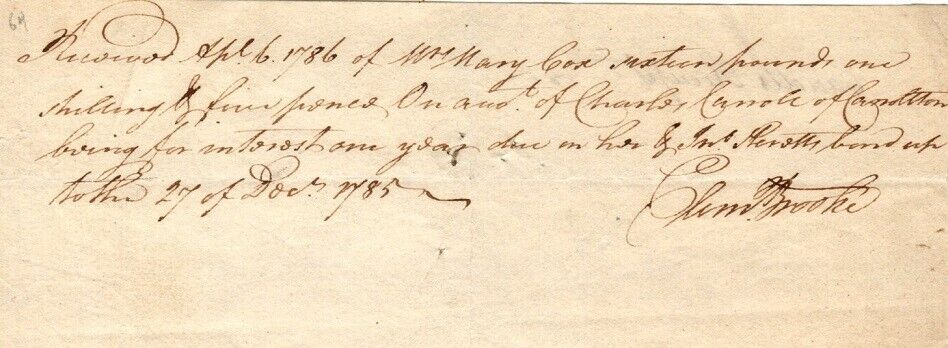 64
Received Apl. 6. 1786 of Mrs Mary Cox sixteen pounds one
shilling & five pence On acct. of Charles Carroll of Carrollton
being for interest one year due on her & Jno. bond up
to the 27 of Decr. 1785
Clemt. Brooke